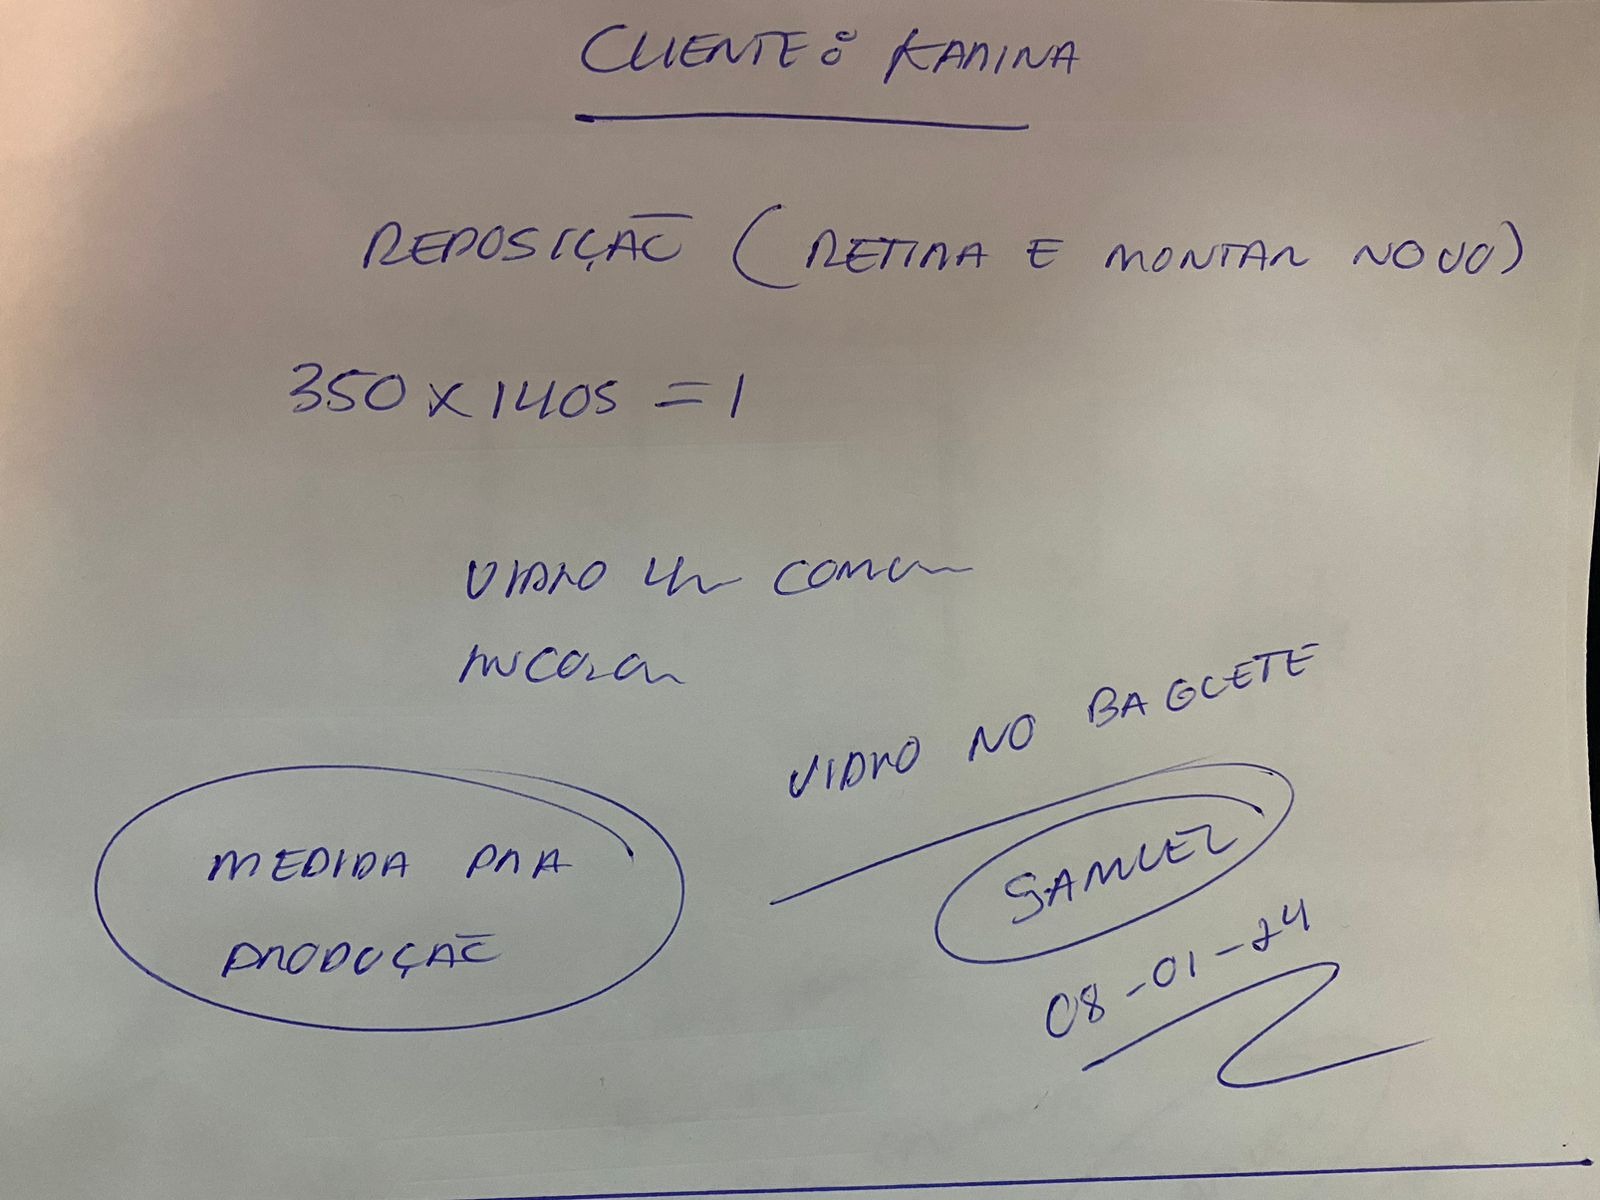 CLIENTE: KARINA
REPOSIÇÃO (RETIRA E MONTAR NOVO)
350 x 1405 = 1
VIDRO 4m COMUM
INCOLOR
VIDRO NO BAGUETE
MEDIDA PRA
PRODUÇÃO
SAMUEL
08-01-24